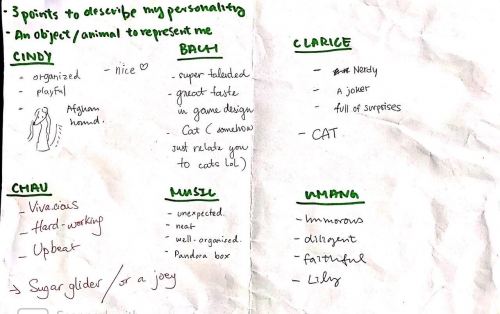 - 3 points to describe my personality
- An object / animal to represent me
CINDY
- organized
- playful
- nice ♡
- Afghan
hound.
BACH
- super talented
- great taste
in game design
- Cat (somehow
just relate you
to cats LoL)
CLARICE
- Nerdy
- A joker
- full of surprises
- CAT
CHAU
- Vivacious
- Hard-working
- Upbeat
→ Sugar glider / or a joey
MUSIL
- unexpected.
- neat
- well-organised.
- Pandora box
UMANG
- humorous
- diligent
- faithful
- Lily